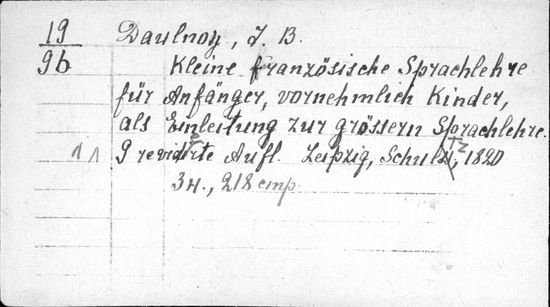 19
9b
Daulnoy, J. B.
Kleine französische Sprachlehre
für Anfänger, vornehmlich Kinder,
als Einleitung zur grössern Sprachlehre.
9 revidirte Aufl. Leipzig, Schultz, 1820
3н., 218 стр.